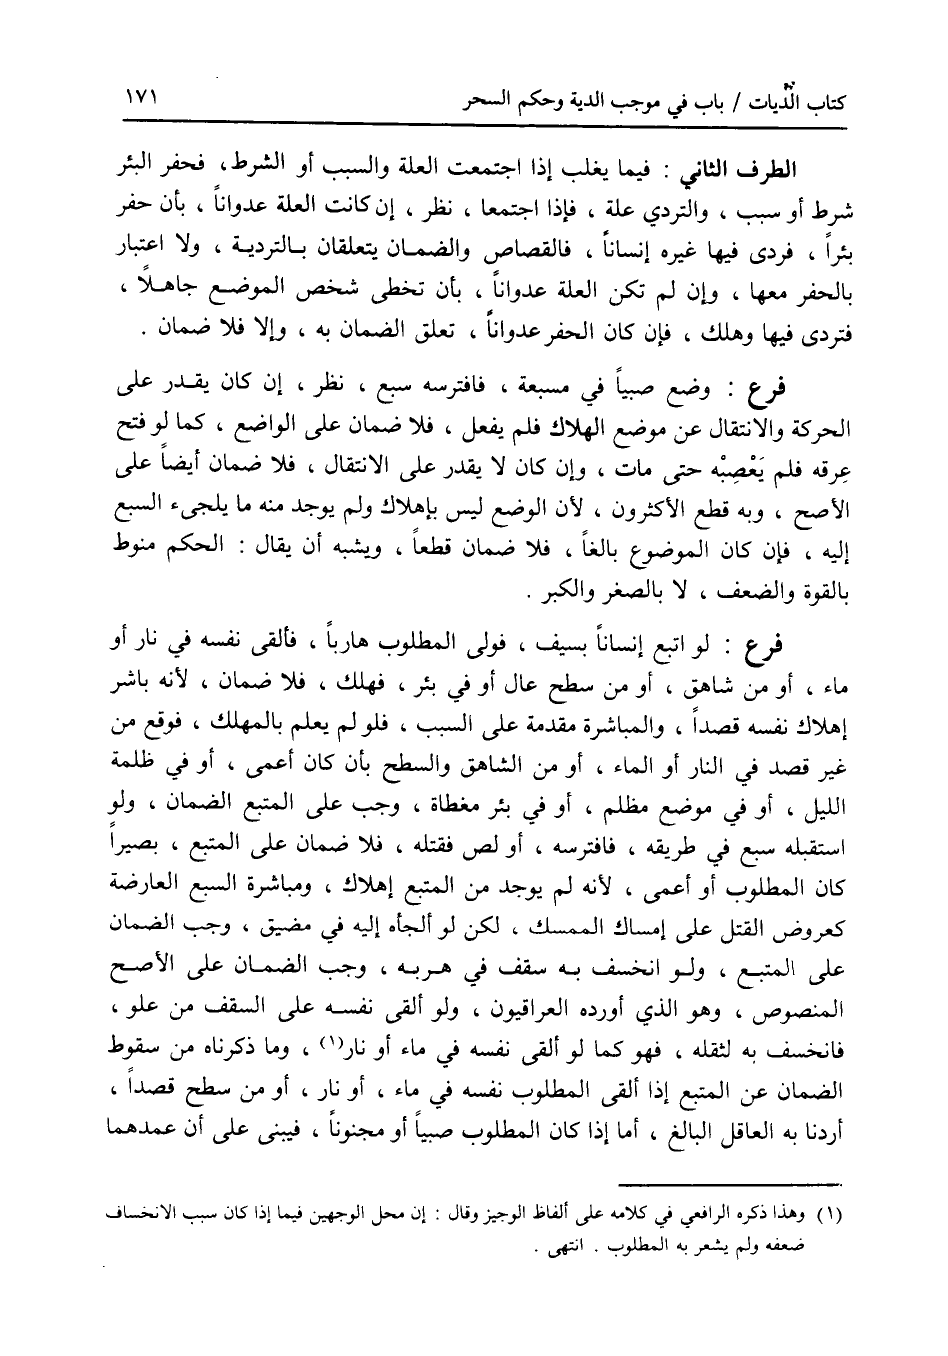 كتاب الدِّيات / باب في موجب الدية وحكم السحر ١٧١
الطرف الثاني : فيما يغلب إذا اجتمعت العلة والسبب أو الشرط، فحفر البئر
شرط أو سبب ، والتردي علة ، فإذا اجتمعا ، نظر ، إن كانت العلة عدواناً ، بأن حفر
بئراً ، فردى فيها غيره إنساناً ، فالقصاص والضمان يتعلقان بالتردية ، ولا اعتبار
بالحفر معها ، وإن لم تكن العلة عدواناً ، بأن تخطى شخص الموضع جاهلاً ،
فتردى فيها وهلك ، فإن كان الحفر عدواناً ، تعلق الضمان به ، وإلا فلا ضمان .
فرع : وضع صبياً في مسبعة ، فافترسه سبع ، نظر ، إن كان يقدر على
الحركة والانتقال عن موضع الهلاك فلم يفعل ، فلا ضمان على الواضع ، كما لو فتح
عِرقه فلم يَعْصِبْه حتى مات ، وإن كان لا يقدر على الانتقال ، فلا ضمان أيضاً على
الأصح ، وبه قطع الأكثرون ، لأن الوضع ليس بإهلاك ولم يوجد منه ما يلجىء السبع
إليه ، فإن كان الموضوع بالغاً ، فلا ضمان قطعاً ، ويشبه أن يقال : الحكم منوط
بالقوة والضعف ، لا بالصغر والكبر .
فرع : لو اتبع إنساناً بسيف ، فولى المطلوب هارباً ، فألقى نفسه في نار أو
ماء ، أو من شاهق ، أو من سطح عال أو في بئر ، فهلك ، فلا ضمان ، لأنه باشر
إهلاك نفسه قصداً ، والمباشرة مقدمة على السبب ، فلو لم يعلم بالمهلك ، فوقع من
غير قصد في النار أو الماء ، أو من الشاهق والسطح بأن كان أعمى ، أو في ظلمة
الليل ، أو في موضع مظلم ، أو في بئر مغطاة ، وجب على المتبع الضمان ، ولو
استقبله سبع في طريقه ، فافترسه ، أو لص فقتله ، فلا ضمان على المتبع ، بصيراً
كان المطلوب أو أعمى ، لأنه لم يوجد من المتبع إهلاك ، ومباشرة السبع العارضة
كعروض القتل على إمساك الممسك ، لكن لو ألجأه إليه في مضيق ، وجب الضمان
على المتبع ، ولو انخسف به سقف في هربه ، وجب الضمان على الأصح
المنصوص ، وهو الذي أورده العراقيون ، ولو ألقى نفسه على السقف من علو ،
فانخسف به لثقله ، فهو كما لو ألقى نفسه في ماء أو نار(١) ، وما ذكرناه من سقوط
الضمان عن المتبع إذا ألقى المطلوب نفسه في ماء ، أو نار ، أو من سطح قصداً ،
أردنا به العاقل البالغ ، أما إذا كان المطلوب صبياً أو مجنوناً ، فيبنى على أن عمدهما
(١) وهذا ذكره الرافعي في كلامه على ألفاظ الوجيز وقال : إن محل الوجهين فيما إذا كان سبب الانخساف
ضعفه ولم يشعر به المطلوب . انتهى .